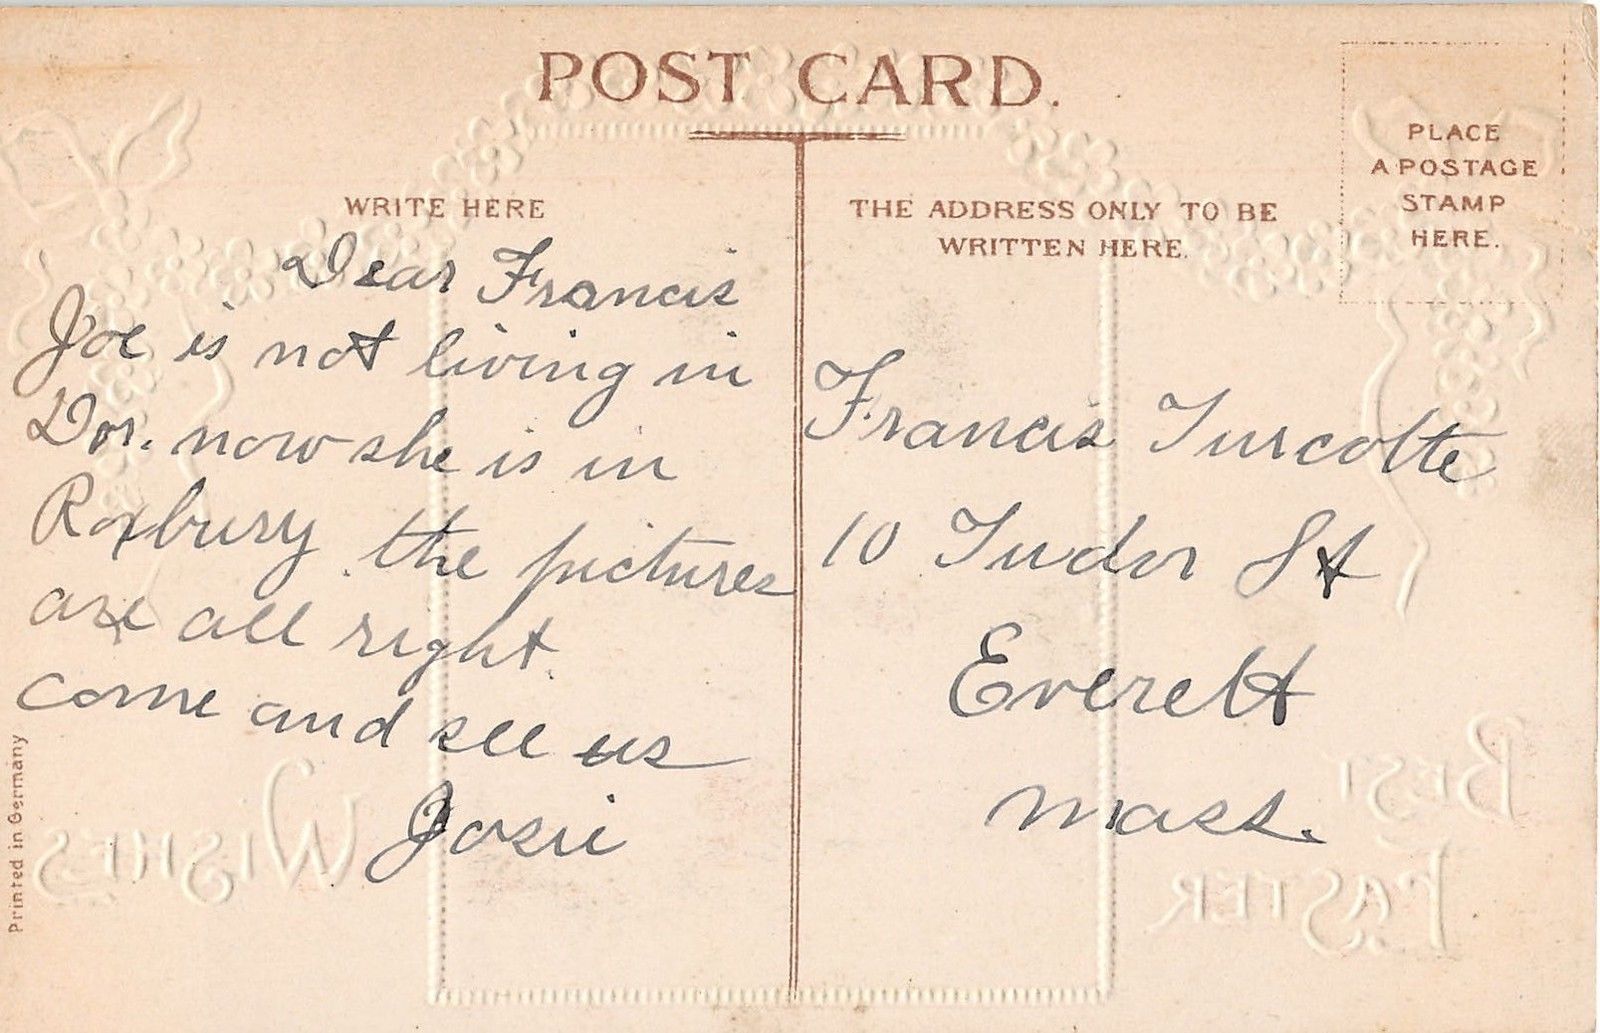 POST CARD.
WRITE HERE
Dear Francis
Joe is not living in
Dor. now she is in
Roxbury. the pictures
are all right.
come and see us
Josie
THE ADDRESS ONLY TO BE
WRITTEN HERE.
PLACE
A POSTAGE
STAMP
HERE.
Francis Turcotte
10 Tudor St
Everett
Mass.
Printed in Germany
BEST
EASTER
WISHES